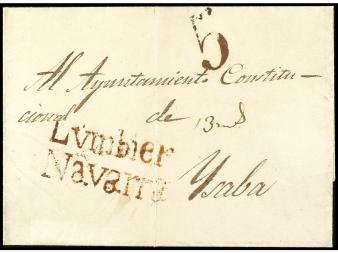 5
Al Ayuntamiento Constitu-
cional de
Lvmbier
Navarra
Ysaba